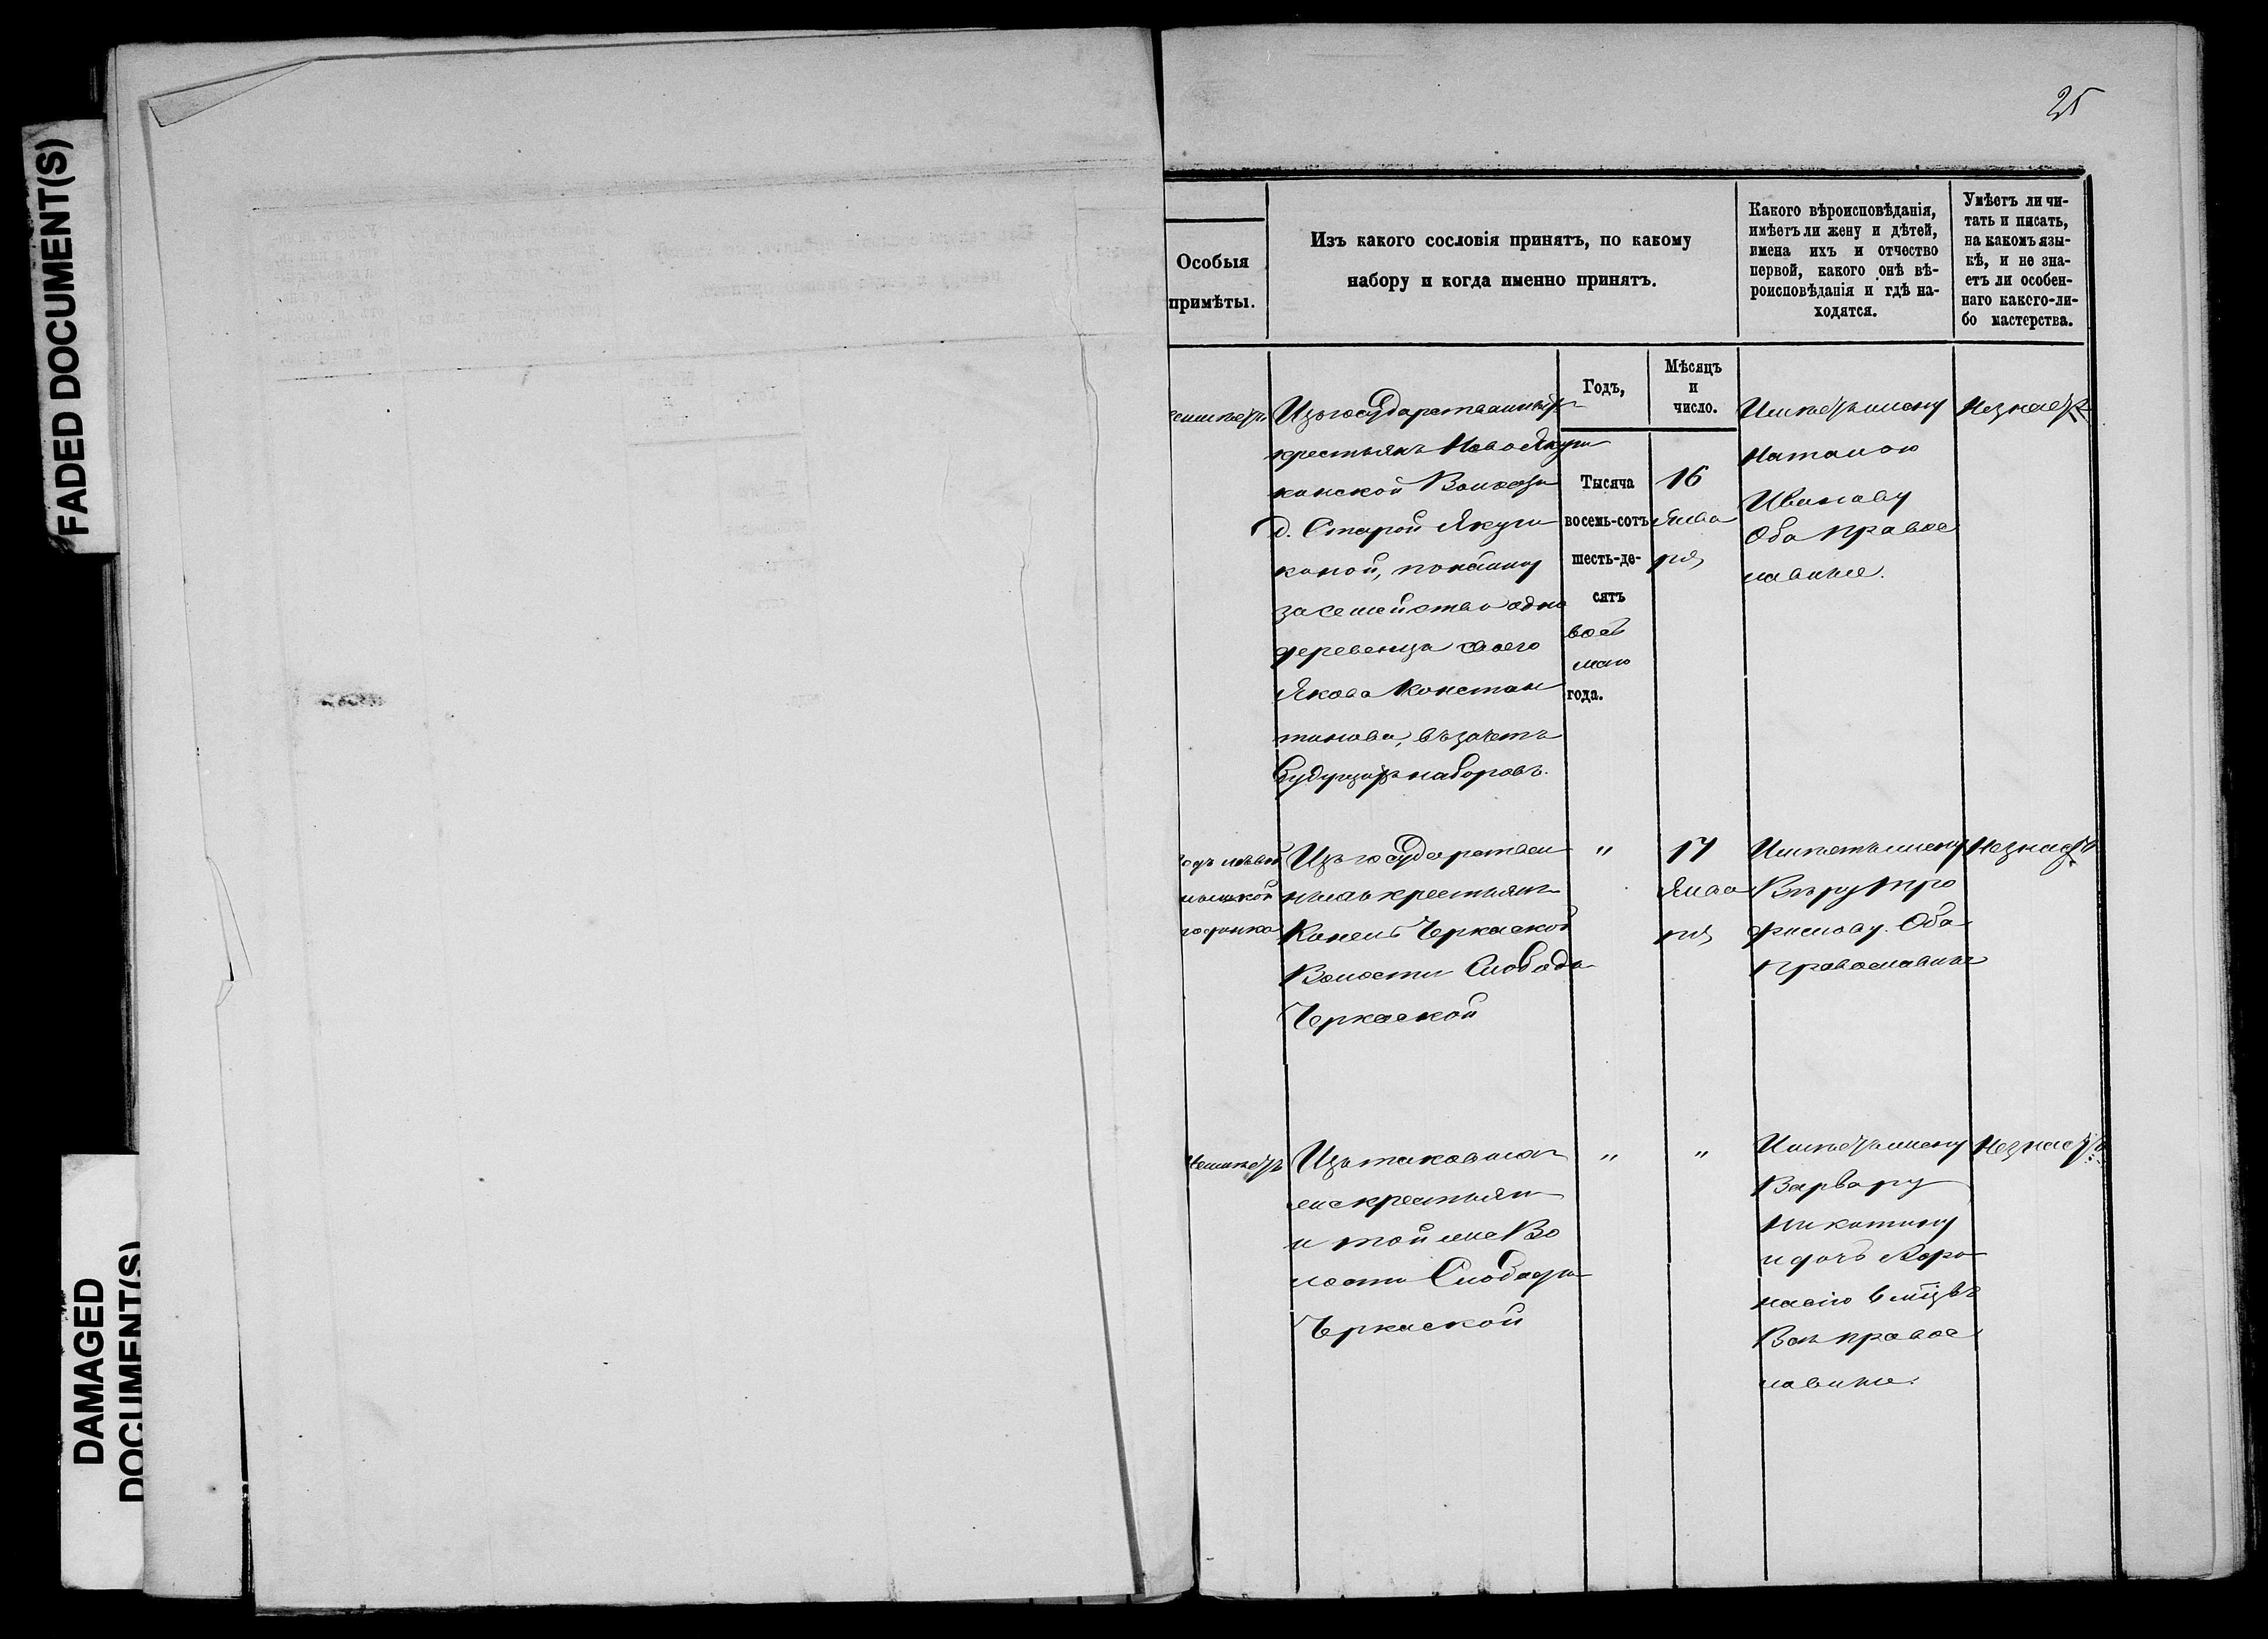 FADED DOCUMENT(S)
DAMAGED
DOCUMENT(S)
25
Особыя
примѣты.
Изъ какого сословія принятъ, по какому
набору и когда именно принятъ.
Какого вѣроисповѣданія,
имѣетъ ли жену и дѣтей,
имена ихъ и отчество
первой, какого онѣ вѣ-
роисповѣданія и гдѣ на-
ходятся.
Умѣетъ ли чи-
тать и писать,
на какомъ язы-
кѣ, и не зна-
етъ ли особен-
наго каксго-ли-
бо мастерства.
Годъ,
Мѣсяцъ
и
число.
Изъ государственныхъ
крестьянъ Ново Якуш
кинской Волости
д. Старой Якуш
киной, по найму
за семейство одно
деревенца своего
Якова Констан
тинова, въ зачетъ
будущихъ наборовъ.
Тысяча
восемь-сотъ
шесть-де-
сятъ
вось
маго
года.
16
Янва
ря
Имѣетъ жену
Наталью
Иванову
Оба правос
лавные.
Незнаетъ
Изъ государствен
ныхъ крестьянъ
Канень Черкаской
Волости Слободы
Черкаской
"
17
Янва
ря
Имѣетъ жену
Вѣру Тро
фимову. Оба
Православные
Незнаетъ
Неимѣетъ
Изъ таковыхъ
же крестьян
и той же Во
лости Слободы
Черкаской
"
"
Имѣетъ жену
Варвару
Никитину
и дочь
6 мцвъ
Всѣ правос
лавные.
Незнаетъ